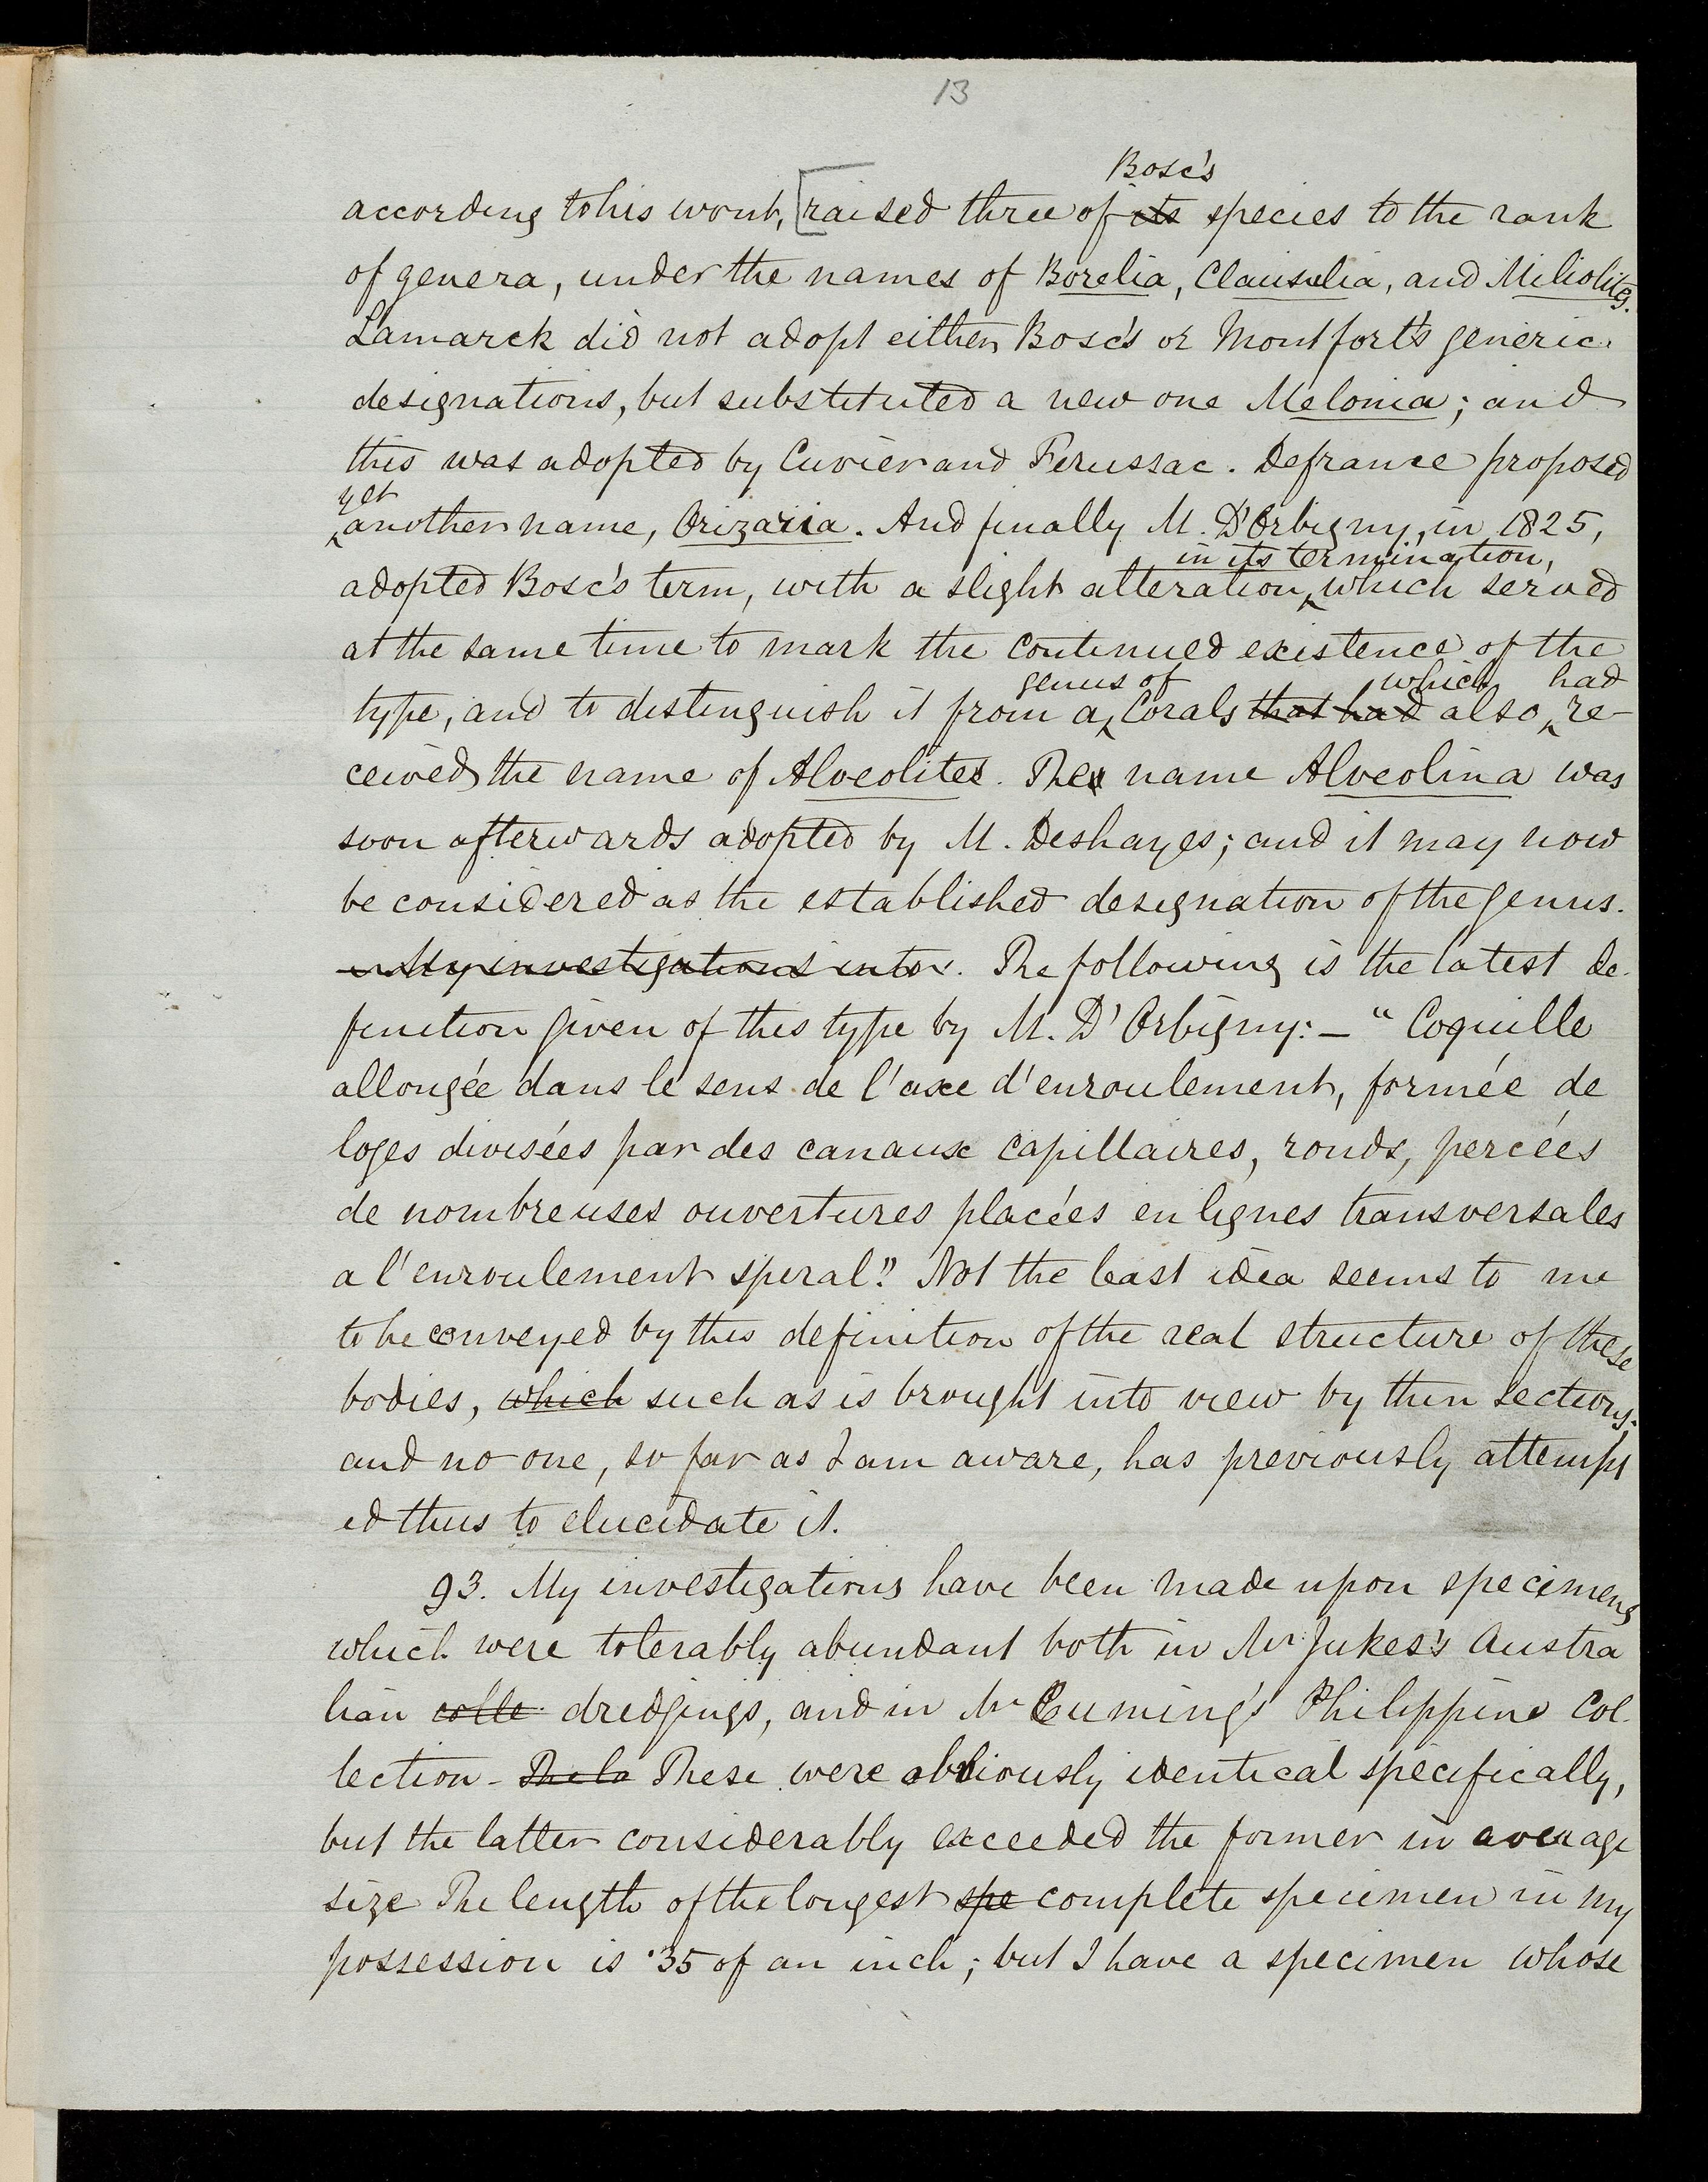 13
Bosc's
according to his wont, [raised three of its species to the rank
of genera, under the names of Borelia, Clausulia, and Miliolites.
Lamarck did not adopt either Bosc's or Montfort's generic
designations, but substituted a new one Melonia; and
this was adopted by Cuvier and Ferussac. Defrance proposed
yet
^another name, Orizaria. And finally M. D'Orbigny, in 1825,
in its termination,
adopted Bosc's term, with a slight alteration^ which served
at the same time to mark the continued existence of the
genus of which had
type, and to distinguish it from a^ Corals that had also^ re-
ceived the name of Alveolites. The name Alveolina was
soon afterwards adopted by M. Deshayes; and it may now
be considered as the established designation of the genus.
My investigations into. The following is the latest de-
finition given of this type by M. D'Orbigny:— "Coquille
allongée dans le sens de l'axe d'enroulement, formée de
loges divisées par des canaux capillaires, ronds, percées
de nombreuses ouvertures placées en lignes transversales
a l'enroulement spiral." Not the least idea seems to me
to be conveyed by this definition of the real structure of these
bodies, which such as is brought into view by thin sections;
and no one, so far as I am aware, has previously attempt
ed thus to elucidate it.
93. My investigations have been made upon specimens
which were tolerably abundant both in Mr Jukes's Austra
lian colle dredgings, and in Mr Cuming's Philippine Col-
lection - The la These were obviously identical specifically,
but the latter considerably exceeded the former in average
size The length of the longest spe complete specimen in my
possession is ·35 of an inch; but I have a specimen whose